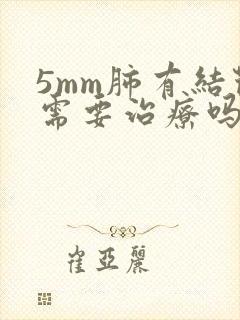 5mm肺有結
需要治療吗
崔亞麗